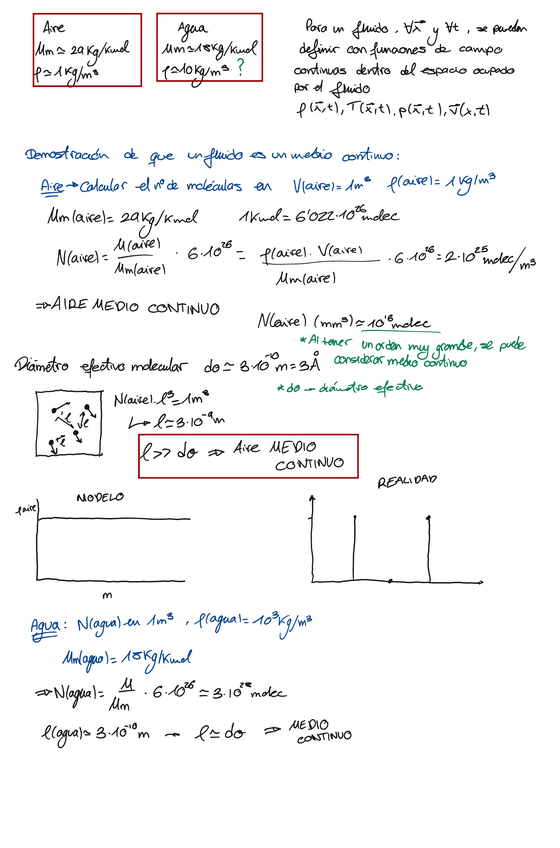 Aire
Mm ≃ 29 Kg/Kmol
ρ ≃ 1 Kg/m³
Agua
Mm ≃ 18 Kg/Kmol
ρ ≃ 10 Kg/m³ ?
Para un fluido, ∀x⃗ y ∀t, se pueden
definir con funciones de campo
continuas dentro del espacio ocupado
por el fluido
ρ(x⃗,t), T(x⃗,t), p(x⃗,t), v⃗(x,t)
Demostración de que un fluido es un medio continuo:
Aire → Calcular el nº de moléculas en V(aire) = 1m³ ρ(aire) = 1 Kg/m³
Mm(aire) = 29 Kg/Kmol 1 Kmol = 6'022·10²⁶ molec
N(aire) = M(aire)/Mm(aire) · 6·10²⁶ = ρ(aire)·V(aire)/Mm(aire) · 6·10²⁶ = 2·10²⁵ molec/m³
⇒ AIRE MEDIO CONTINUO
N(aire) (mm³) ≃ 10¹⁶ molec
* Al tener un orden muy grande, se puede
considerar medio continuo
Diámetro efectivo molecular do ≃ 3·10⁻¹⁰ m = 3Å
* do → diámetro efectivo
N(aire)·l³ = 1m³
↳ l ≃ 3·10⁻⁹ m
l l l
l >> do ⇒ Aire MEDIO
CONTINUO
MODELO
REALIDAD
ρ aire
m
Agua: N(agua) en 1m³, ρ(agua) = 10³ Kg/m³
Mm(agua) = 18 Kg/Kmol
⇒ N(agua) = M/Mm · 6·10²⁶ ≃ 3·10²⁸ molec
l(agua) ≃ 3·10⁻¹⁰ m → l ≃ do ⇒ MEDIO
CONTINUO